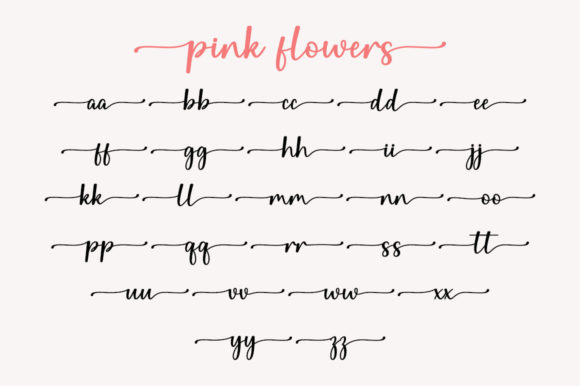 pink flowers
aa bb cc dd ee
ff gg hh ii jj
kk ll mm nn oo
pp qq rr ss tt
uu vv ww xx
yy zz